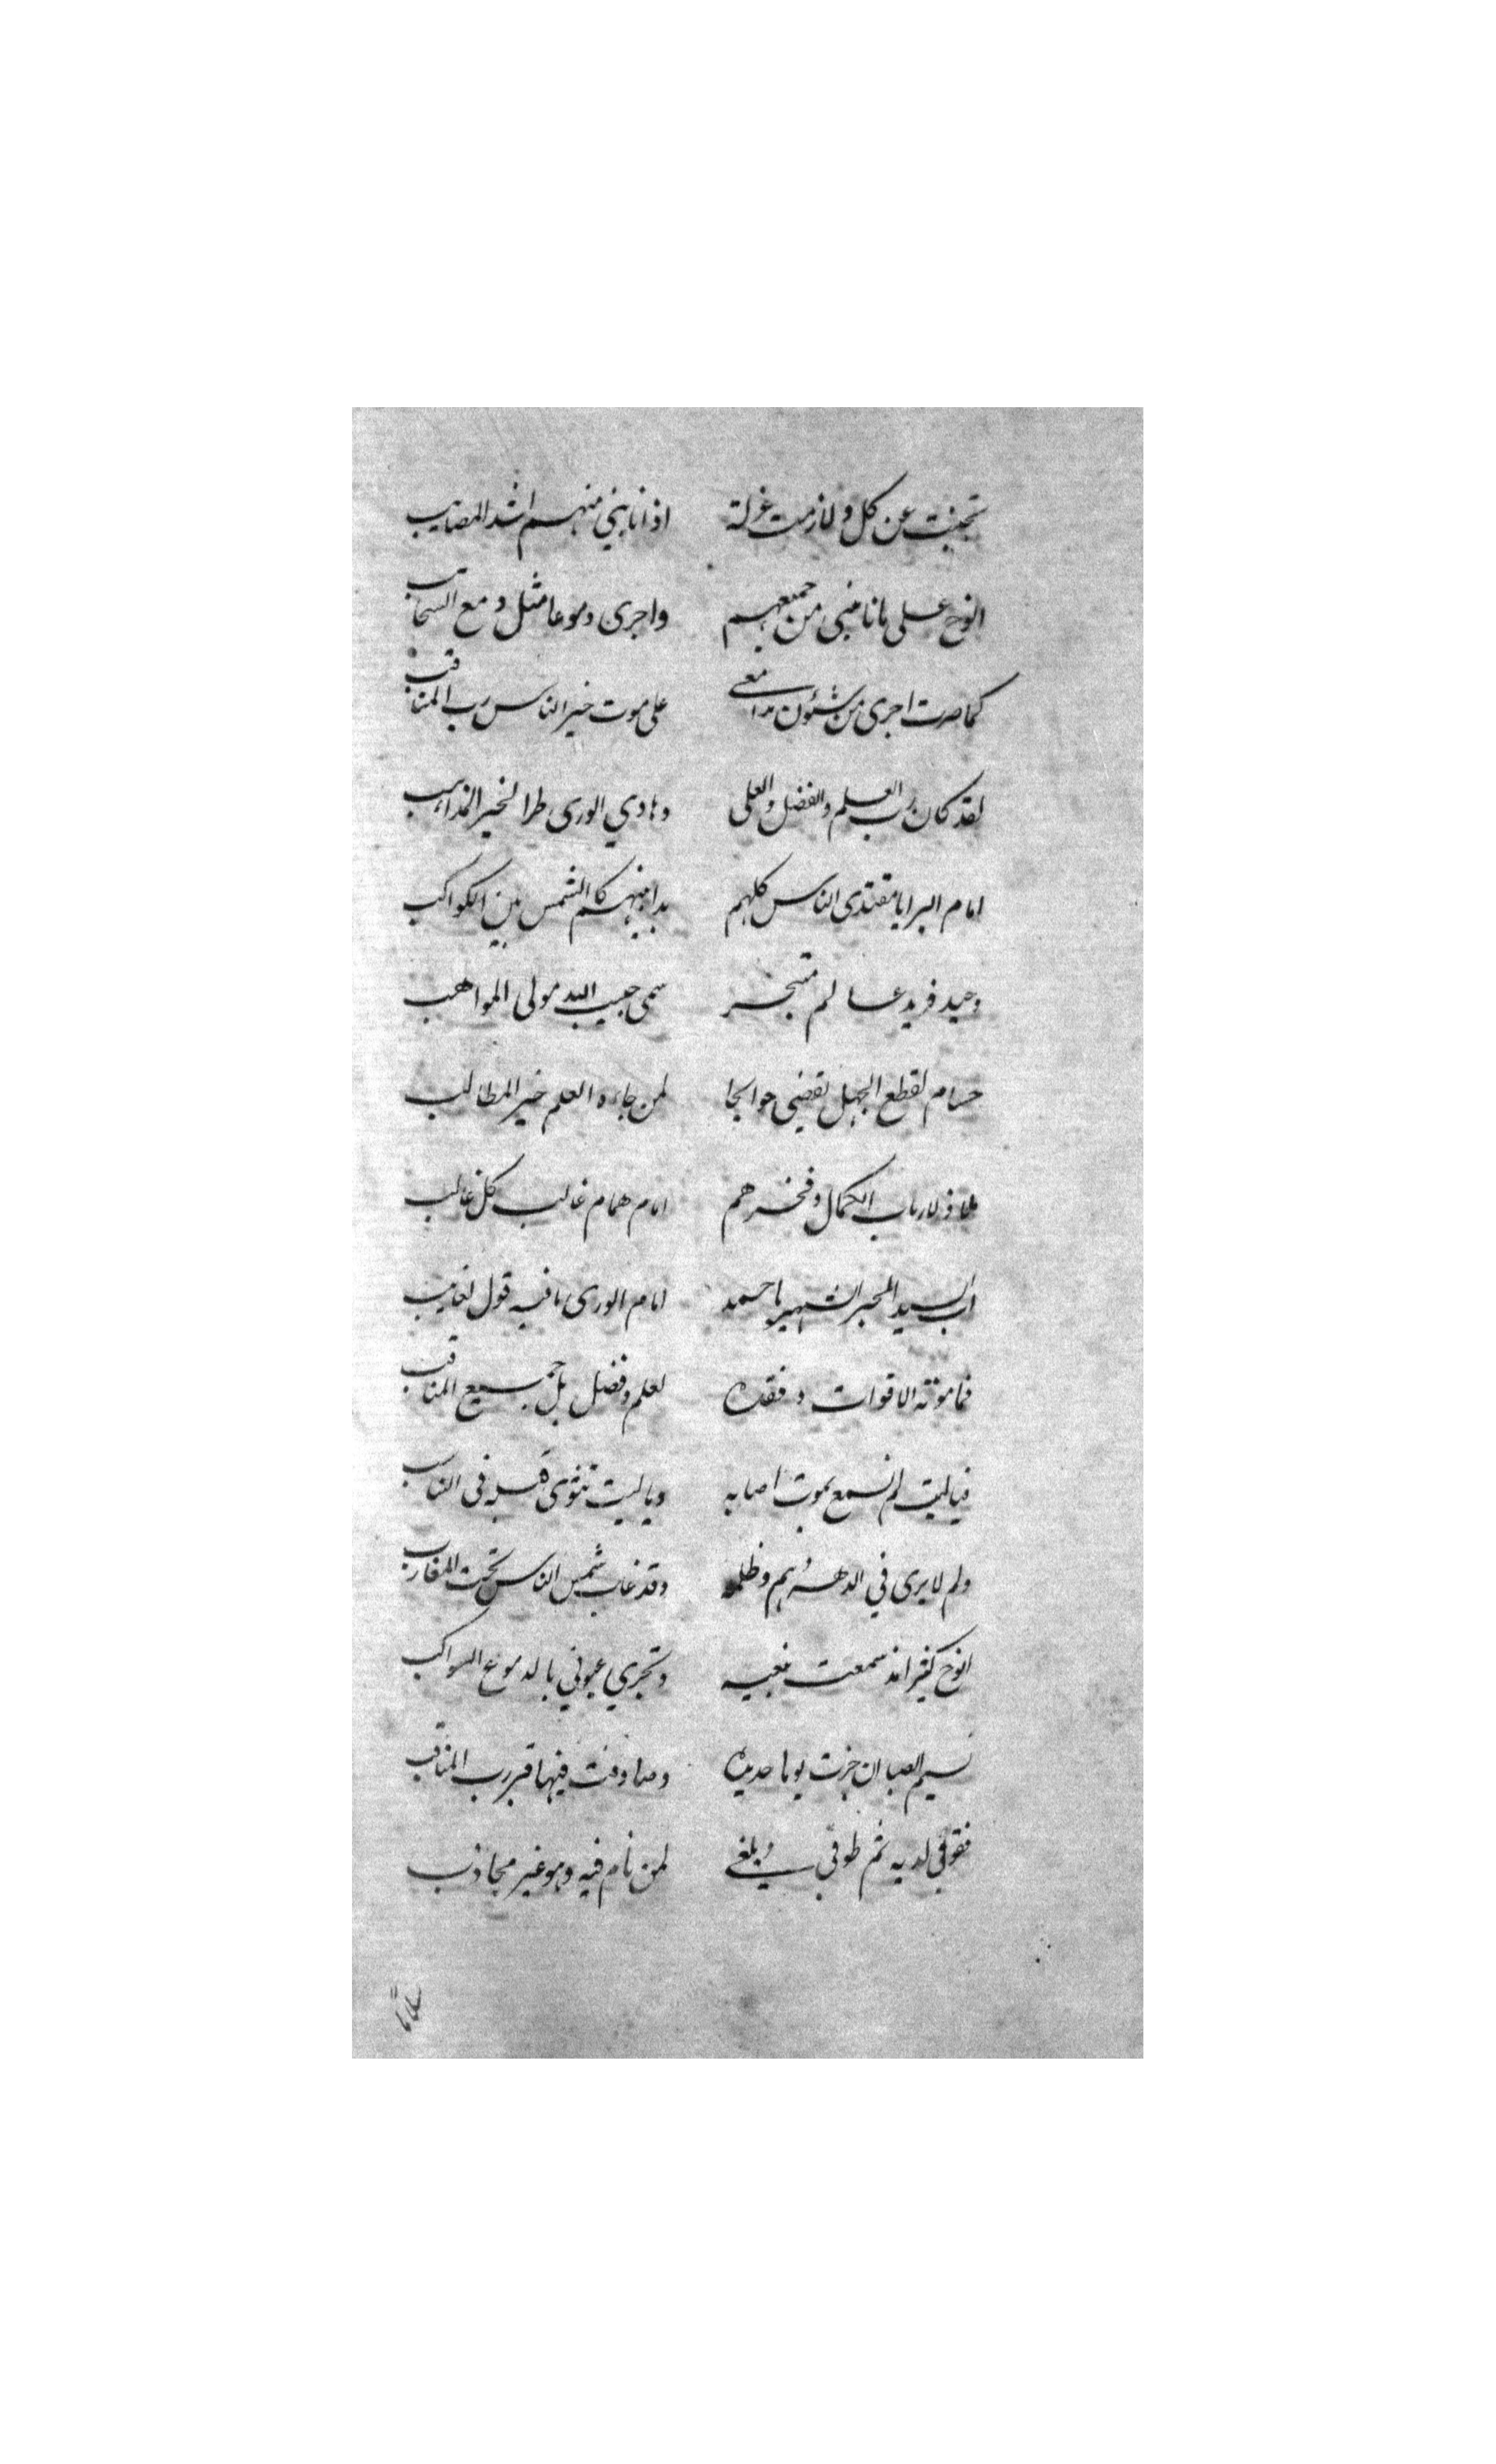 تجنبت عن كل ولازمت عزلة اذا نابني منهم اشد المصايب
انوح على ما نابني من جميعهم واجرى دموعا مثل دمع السحايب
كما صرت اجرى من شئون مدامعي على موت خير الناس رب المناقب
لقد كان رب العلم والفضل والعلى وهادي الورى طرا لخير المذاهب
امام البرايا مقتدى الناس كلهم بدا منهم كالشمس بين الكواكب
وحيد فريد عالم متبحر سمى حبيب الله مولى المواهب
حسام لقطع الجهل يقضي حوائجا لمن جاءه العلم خير المطالب
ملاذ لارباب الكمال وفخرهم امام همام غالب كل غالب
اب السيد الحبر الشهير باحمد امام الورى ما فيه قول لعايب
فما موته الا فوات وفقده لعلم وفضل بل جميع المناقب
فيا ليت لم نسمع بموت اصابه ويا ليت نثوى قبله في
ولم لا يرى في الدهر هم وظلمة وقد غاب شمس الناس تحت المغارب
انوح كثيرا مذ سمعت نعيه وتجري عيوني بالدموع السواكب
نسيم الصبا ان جزت يوما حديده وصادفت فيها قبر رب المناقب
فقومي لديه ثم طوفي وبلغي لمن نام فيه وهو غير مجاذب
سلاما